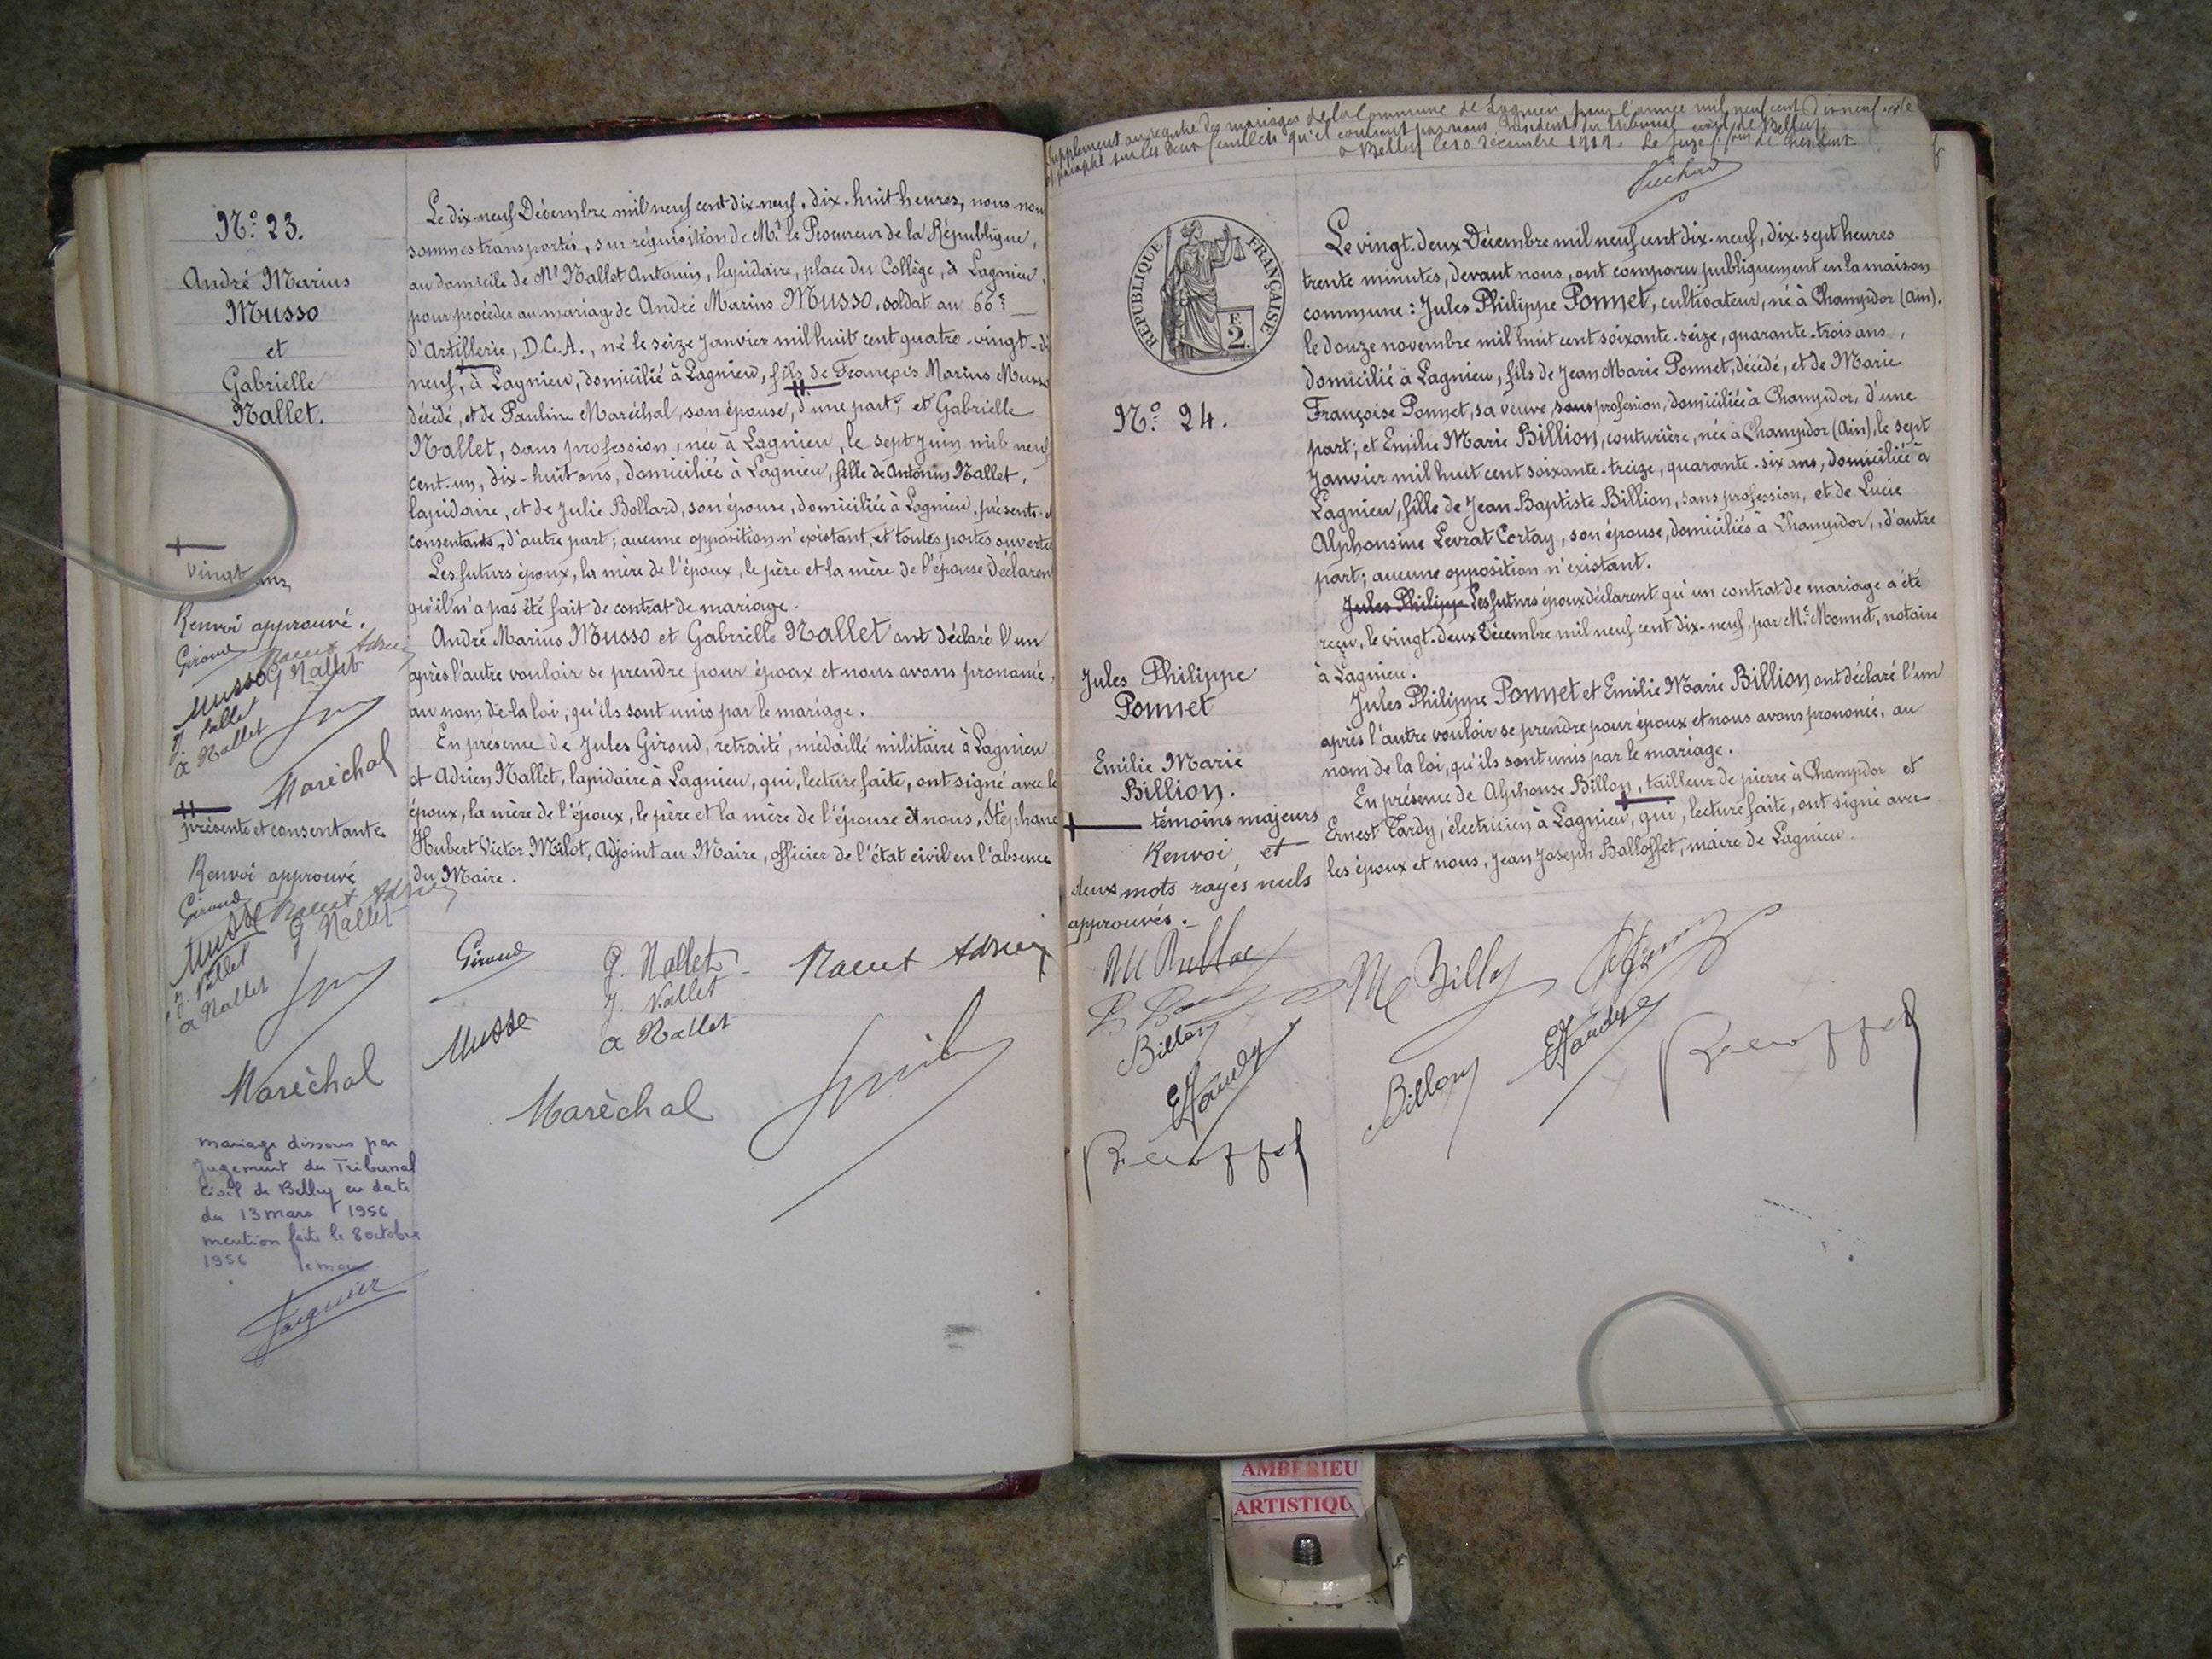 N.° 23.
André Marius
Musso
et
Gabrielle
Nallet.
Le dix-neuf Décembre mil neuf cent dix-neuf, dix-huit heures, nous nous
sommes transportés, sur réquisition de Mr le Procureur de la République,
au domicile de Mr Nallet Antonin, lapidaire, place du Collège, à Lagnieu,
pour procéder au mariage de André Marius Musso, soldat au 66e
d'Artillerie, D.C.A., né le seize Janvier mil huit cent quatre-vingt-di
neuf, à Lagnieu, domicilié à Lagnieu, fils de François Marius Musso
décédé, et de Pauline Maréchal, son épouse, d'une part; et Gabrielle
Nallet, sans profession, née à Lagnieu, le sept Juin mil neuf
cent-un, dix-huit ans, domiciliée à Lagnieu, fille de Antonin Nallet,
lapidaire, et de Julie Bollard, son épouse, domiciliée à Lagnieu, présents et
consentants, d'autre part; aucune opposition n'existant, et toutes portes ouvertes
Les futurs époux, la mère de l'époux, le père et la mère de l'épouse déclarent
qu'il n'a pas été fait de contrat de mariage.
André Marius Musso et Gabrielle Nallet ont déclaré l'un
après l'autre vouloir se prendre pour époux et nous avons prononcé,
au nom de la loi, qu'ils sont unis par le mariage.
En présence de Jules Giroud, retraité, médaillé militaire à Lagnieu
et Adrien Nallet, lapidaire à Lagnieu, qui, lecture faite, ont signé avec le
époux, la mère de l'époux, le père et la mère de l'épouse et nous, Stéphane
Hubert Victor Milot, Adjoint au Maire, officier de l'état civil en l'absence
du Maire.
vingt ans
Renvoi approuvé.
Giroud
Musso G Nallet
J. Nallet
a Nallet
Maréchal
présente et consentante
Renvoi approuvé
Giroud
Musso
G Nallet
J. Nallet
a Nallet
Maréchal
Giroud
G. Nallet
J. Nallet
a Nallet
Musso
Maréchal
mariage dissous par
Jugement du Tribunal
Civil de Belley en date
du 13 mars 1956
mention faite le 8 octobre
1956 le maire
Supplément au registre des mariages de la Commune de Lagnieu pour l'année mil neuf cent dix neuf
et paraphé sur les deux feuillets qu'il contient par nous Président du tribunal civil de Belley
à Belley le 10 décembre 1919. Le Juge
REPUBLIQUE FRANÇAISE
F.
2.
N.° 24.
Jules Philippe
Ponnet
Emilie Marie
Billion.
Le vingt-deux Décembre mil neuf cent dix-neuf, dix-sept heures
trente minutes, devant nous, ont comparu publiquement en la maison
commune: Jules Philippe Ponnet, cultivateur, né à Champdor (Ain),
le douze novembre mil huit cent soixante-seize, quarante-trois ans,
domicilié à Lagnieu, fils de Jean Marie Ponnet, décédé, et de Marie
Françoise Ponnet, sa veuve, sans profession, domiciliée à Champdor, d'une
part; et Emilie Marie Billion, couturière, née à Champdor (Ain), le sept
Janvier mil huit cent soixante-treize, quarante-six ans, domiciliée à
Lagnieu, fille de Jean Baptiste Billion, sans profession, et de Lucie
Alphonsine Levrat Cortay, son épouse, domiciliés à Champdor, d'autre
part; aucune opposition n'existant.
Jules Philippe Les futurs époux déclarent qu'un contrat de mariage a été
reçu, le vingt-deux Décembre mil neuf cent dix-neuf, par Me Monnet, notaire
à Lagnieu.
Jules Philippe Ponnet et Emilie Marie Billion ont déclaré l'un
après l'autre vouloir se prendre pour époux et nous avons prononcé, au
nom de la loi, qu'ils sont unis par le mariage.
En présence de Alphonse Billon, tailleur de pierre à Champdor et
Ernest Tardy, électricien à Lagnieu, qui, lecture faite, ont signé avec
les époux et nous, Jean Joseph Balloffet, maire de Lagnieu.
témoins majeurs
Renvoi et
deux mots rayés nuls
approuvés.
Billon
ETardy
Billon
ETardy
AMBERIEU
ARTISTIQU